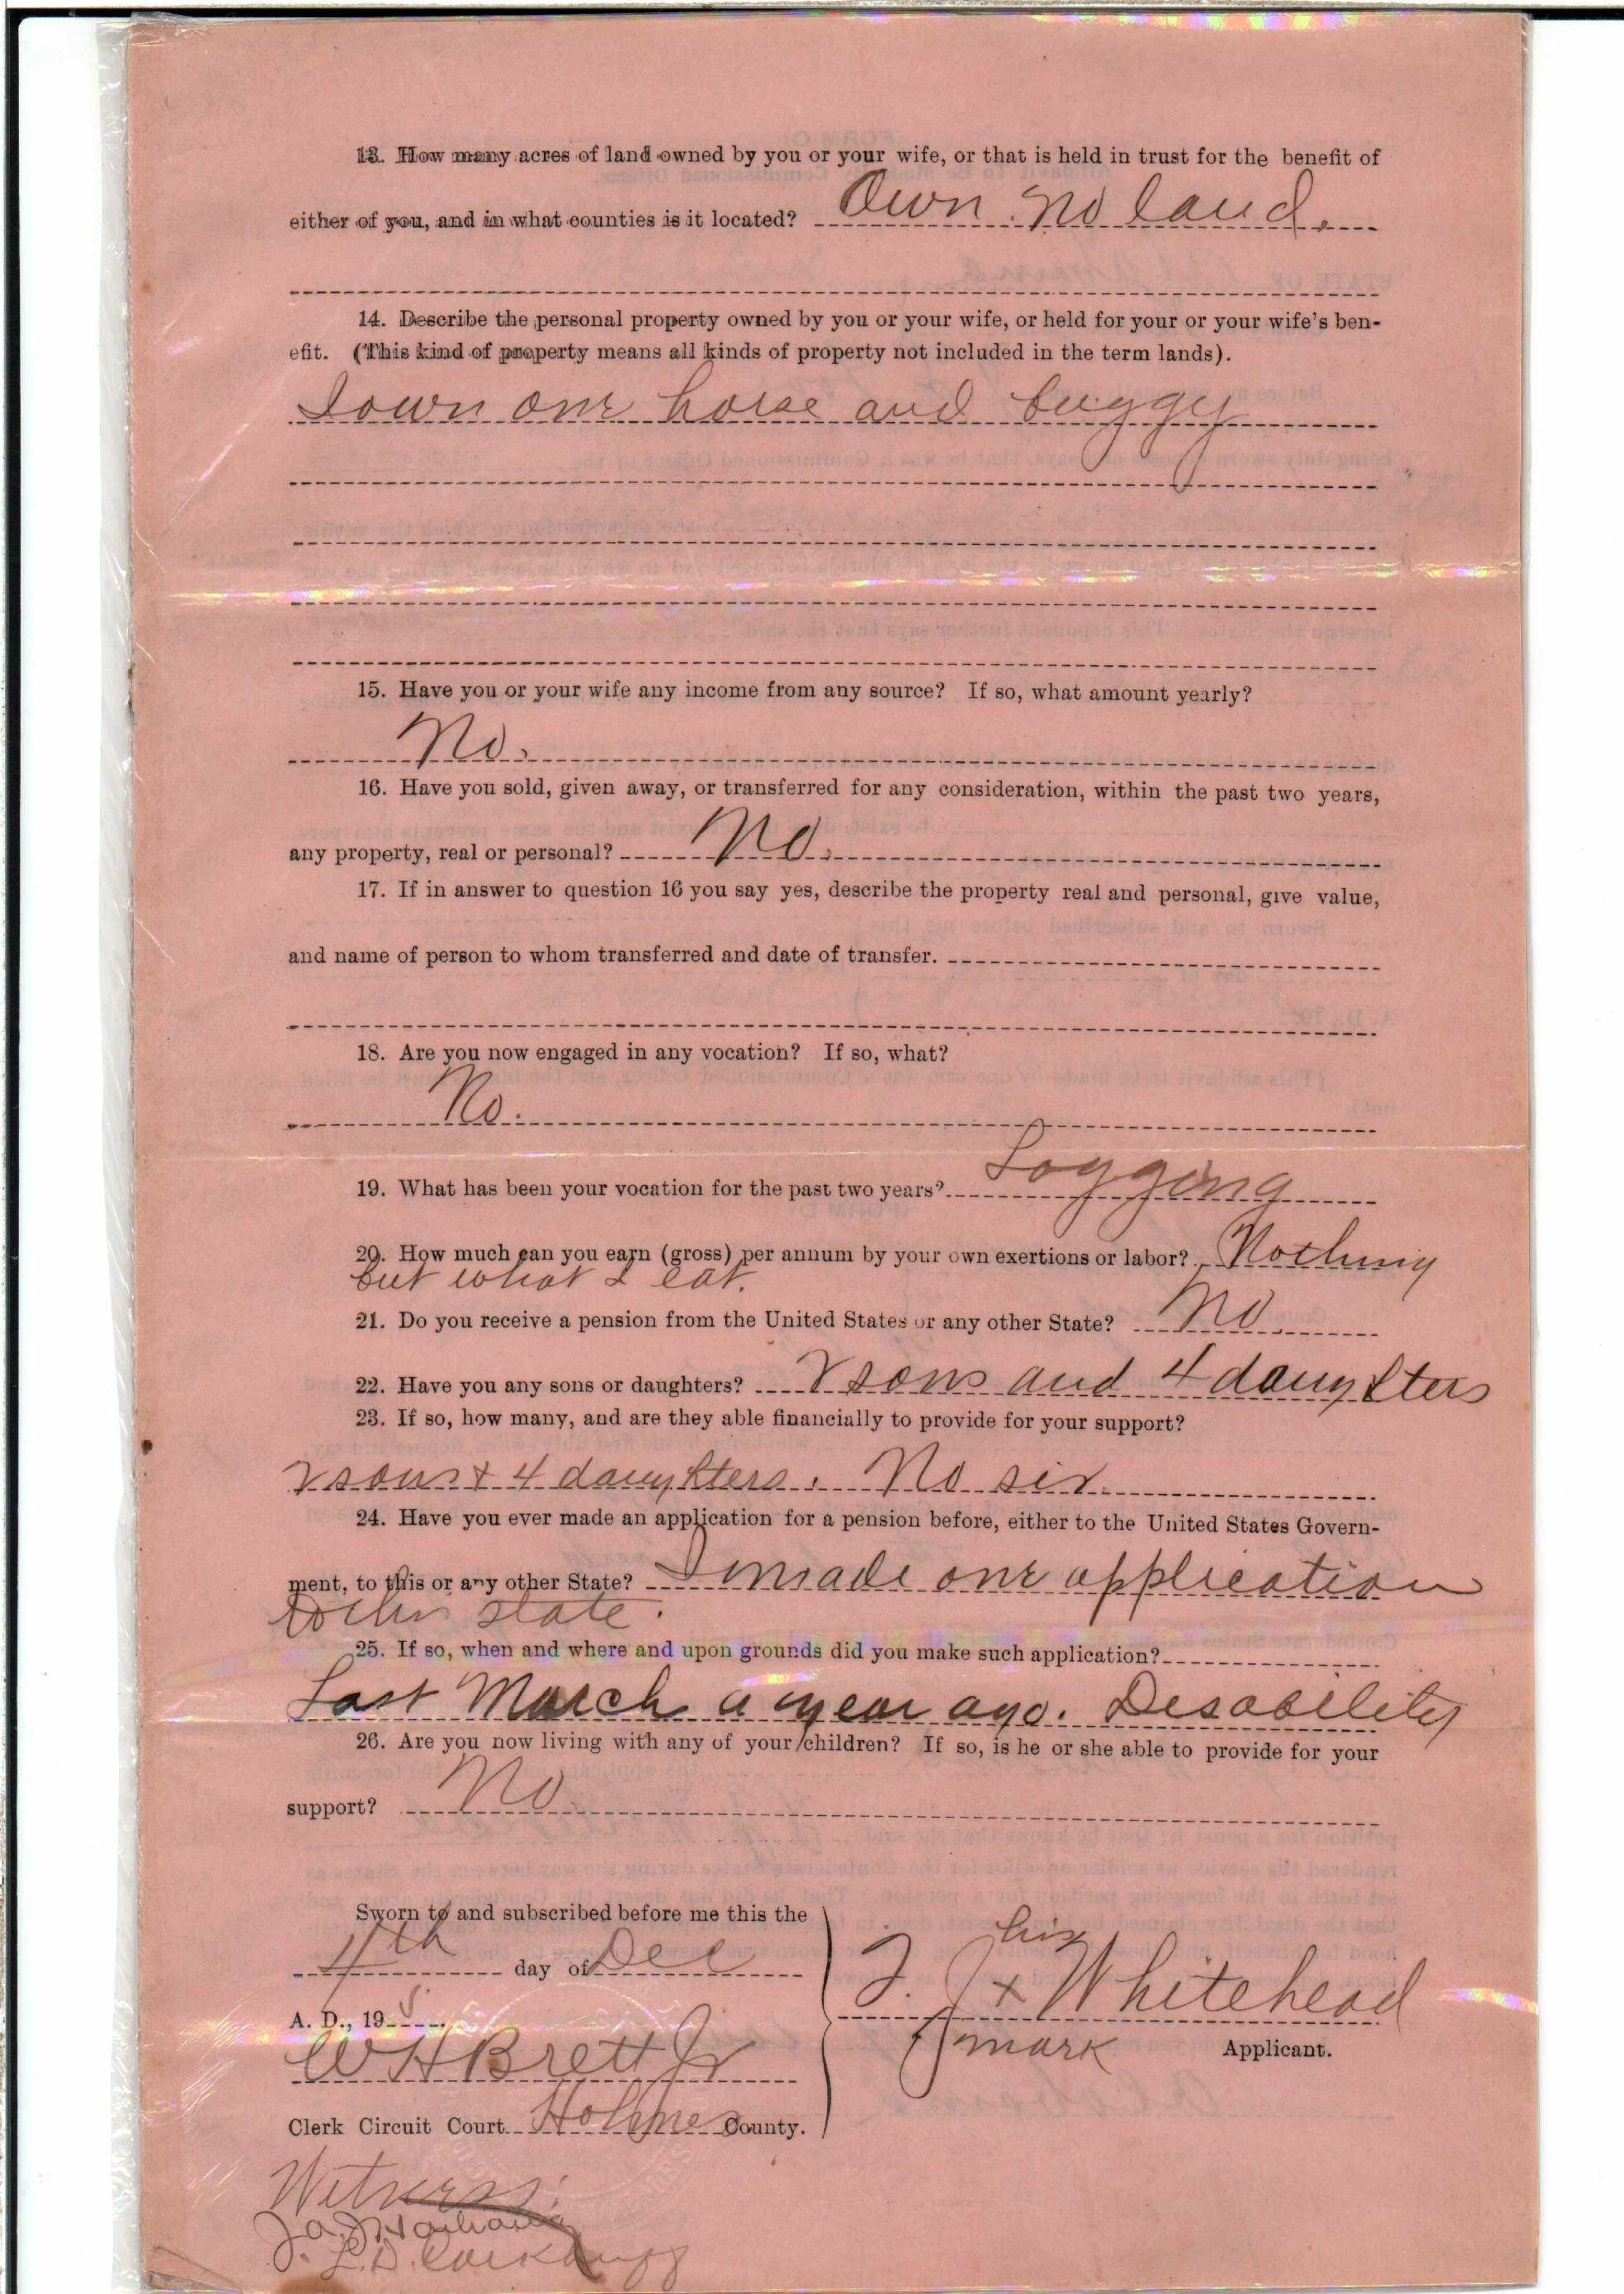 13. How many acres of land owned by you or your wife, or that is held in trust for the benefit of
either of you, and in what counties is it located? Own no land.
14. Describe the personal property owned by you or your wife, or held for your or your wife's ben-
efit. (This kind of property means all kinds of property not included in the term lands).
I own one horse and buggy
15. Have you or your wife any income from any source? If so, what amount yearly?
No.
16. Have you sold, given away, or transferred for any consideration, within the past two years,
any property, real or personal? No.
17. If in answer to question 16 you say yes, describe the property real and personal, give value,
and name of person to whom transferred and date of transfer.
18. Are you now engaged in any vocation? If so, what?
No.
19. What has been your vocation for the past two years? Logging
20. How much can you earn (gross) per annum by your own exertions or labor? Nothing
but what I eat.
21. Do you receive a pension from the United States or any other State? No.
22. Have you any sons or daughters? 2 sons and 4 daughters
23. If so, how many, and are they able financially to provide for your support?
2 sons & 4 daughters. No sir.
24. Have you ever made an application for a pension before, either to the United States Govern-
ment, to this or any other State? I made one application
to this state.
25. If so, when and where and upon grounds did you make such application?
Last March a year ago. Desability
26. Are you now living with any of your children? If so, is he or she able to provide for your
support? No
Sworn to and subscribed before me this the
4th day of Dec
A. D., 19 8.
W H Brett Jr
Clerk Circuit Court Holmes County.
his
J. J. x Whitehead
mark Applicant.
Witness:
L.D.